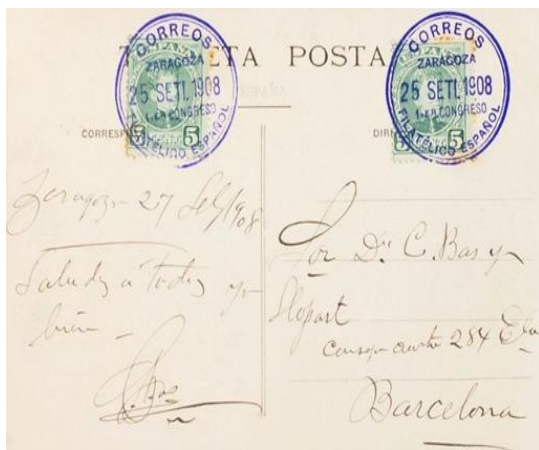 TARJETA POSTAL
CORREOS
ZARAGOZA
25 SETI. 1908
1er CONGRESO
FILATÉLICO ESPAÑOL
CORREOS
ZARAGOZA
25 SETI. 1908
1er CONGRESO
FILATÉLICO ESPAÑOL
ESPAÑA
5 5
5 5
Zaragoza 27 Set/908
Saludos á todos yo
bien —
Sor Dn C. Bas y
Llopart
Consejo ciento 284
Barcelona